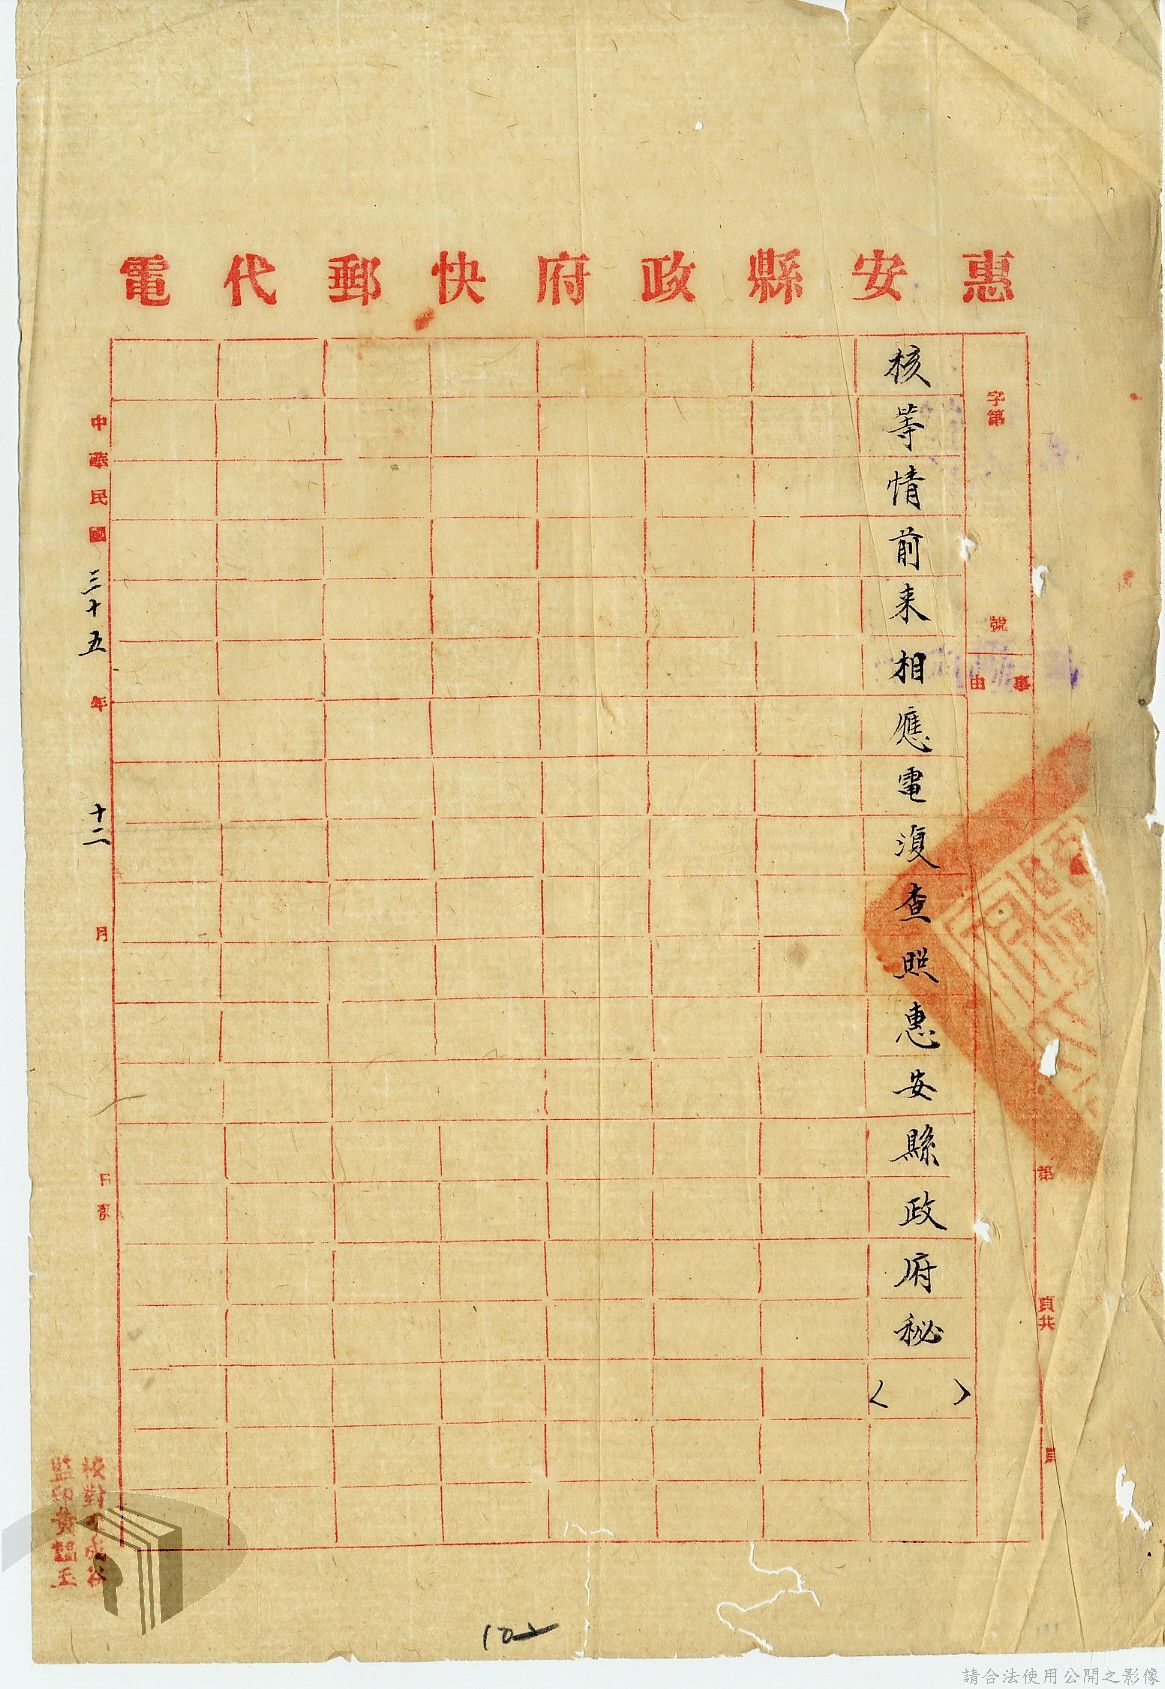 惠安縣政府快郵代電
字第 號
事由
第 頁共 頁
核等情前来相應電復查照惠安縣政府秘〈 〉
中華民國三十五年十二月 日發
校對 成谷
監印黃韞玉
102
請合法使用公開之影像